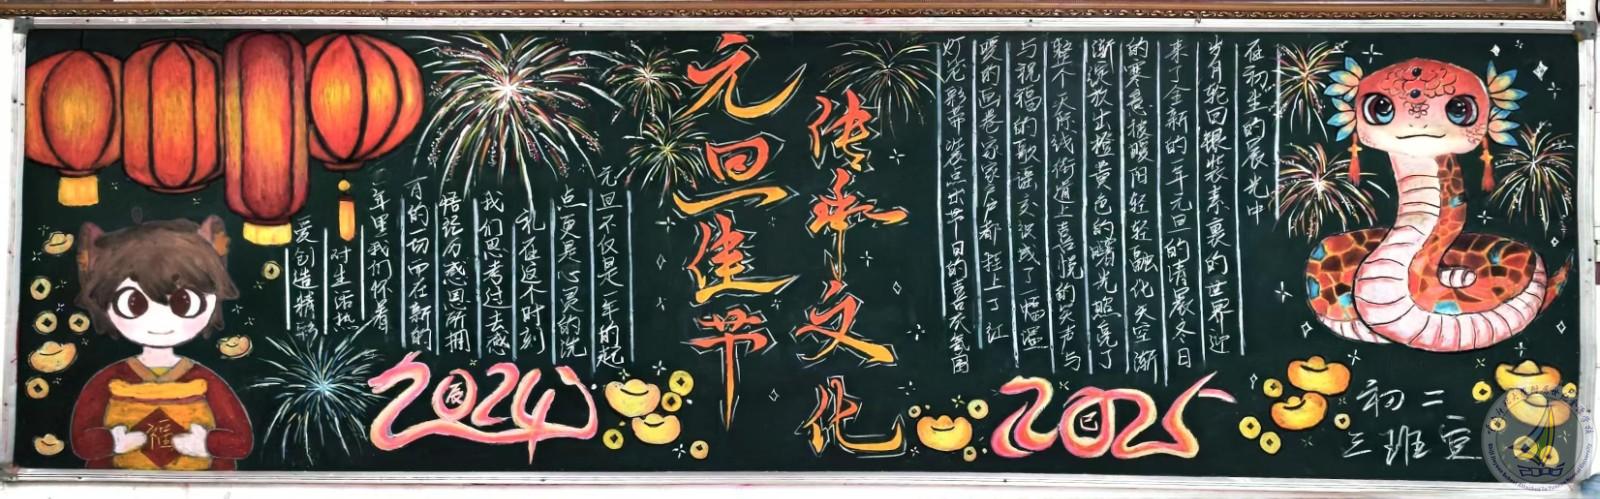 元旦佳节
传承文化
在初生的晨光中
岁月轮回银装素裹的世界迎
来了全新的一年元旦的清晨冬日
的寒意被暖阳轻轻融化天空渐
渐绽放出橙黄色的曙光照亮了
整个天际线街道上喜悦的笑声与
与祝福的歌谣交织成了一幅温
暖的画卷家家户户都挂上了红
灯笼彩带装点出节日的喜庆氛围
元旦不仅是一年的起
点更是心灵的洗
礼在这个时刻
我们思考过去感
悟经历感恩所拥
有的一切而在新的
一年里我们怀着
对生活热
爱创造精彩
福
2024
辰
2025
巳
初二
三班宣